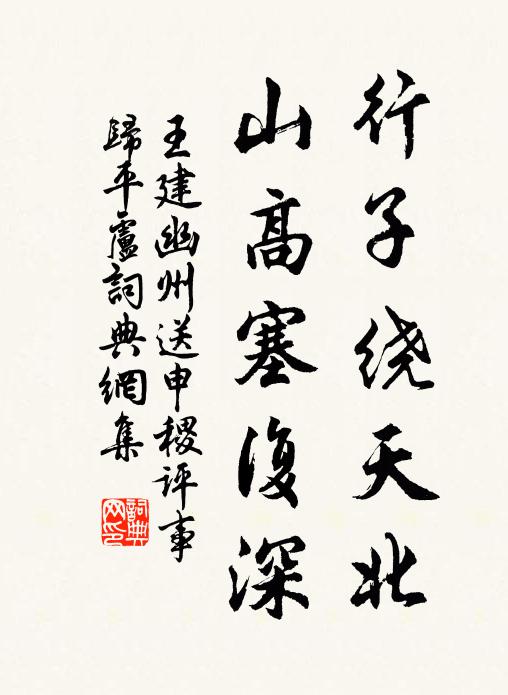 行子绕天北
山高塞復深
王建幽州送申稷评事
歸平盧詞典網集
詞典网印